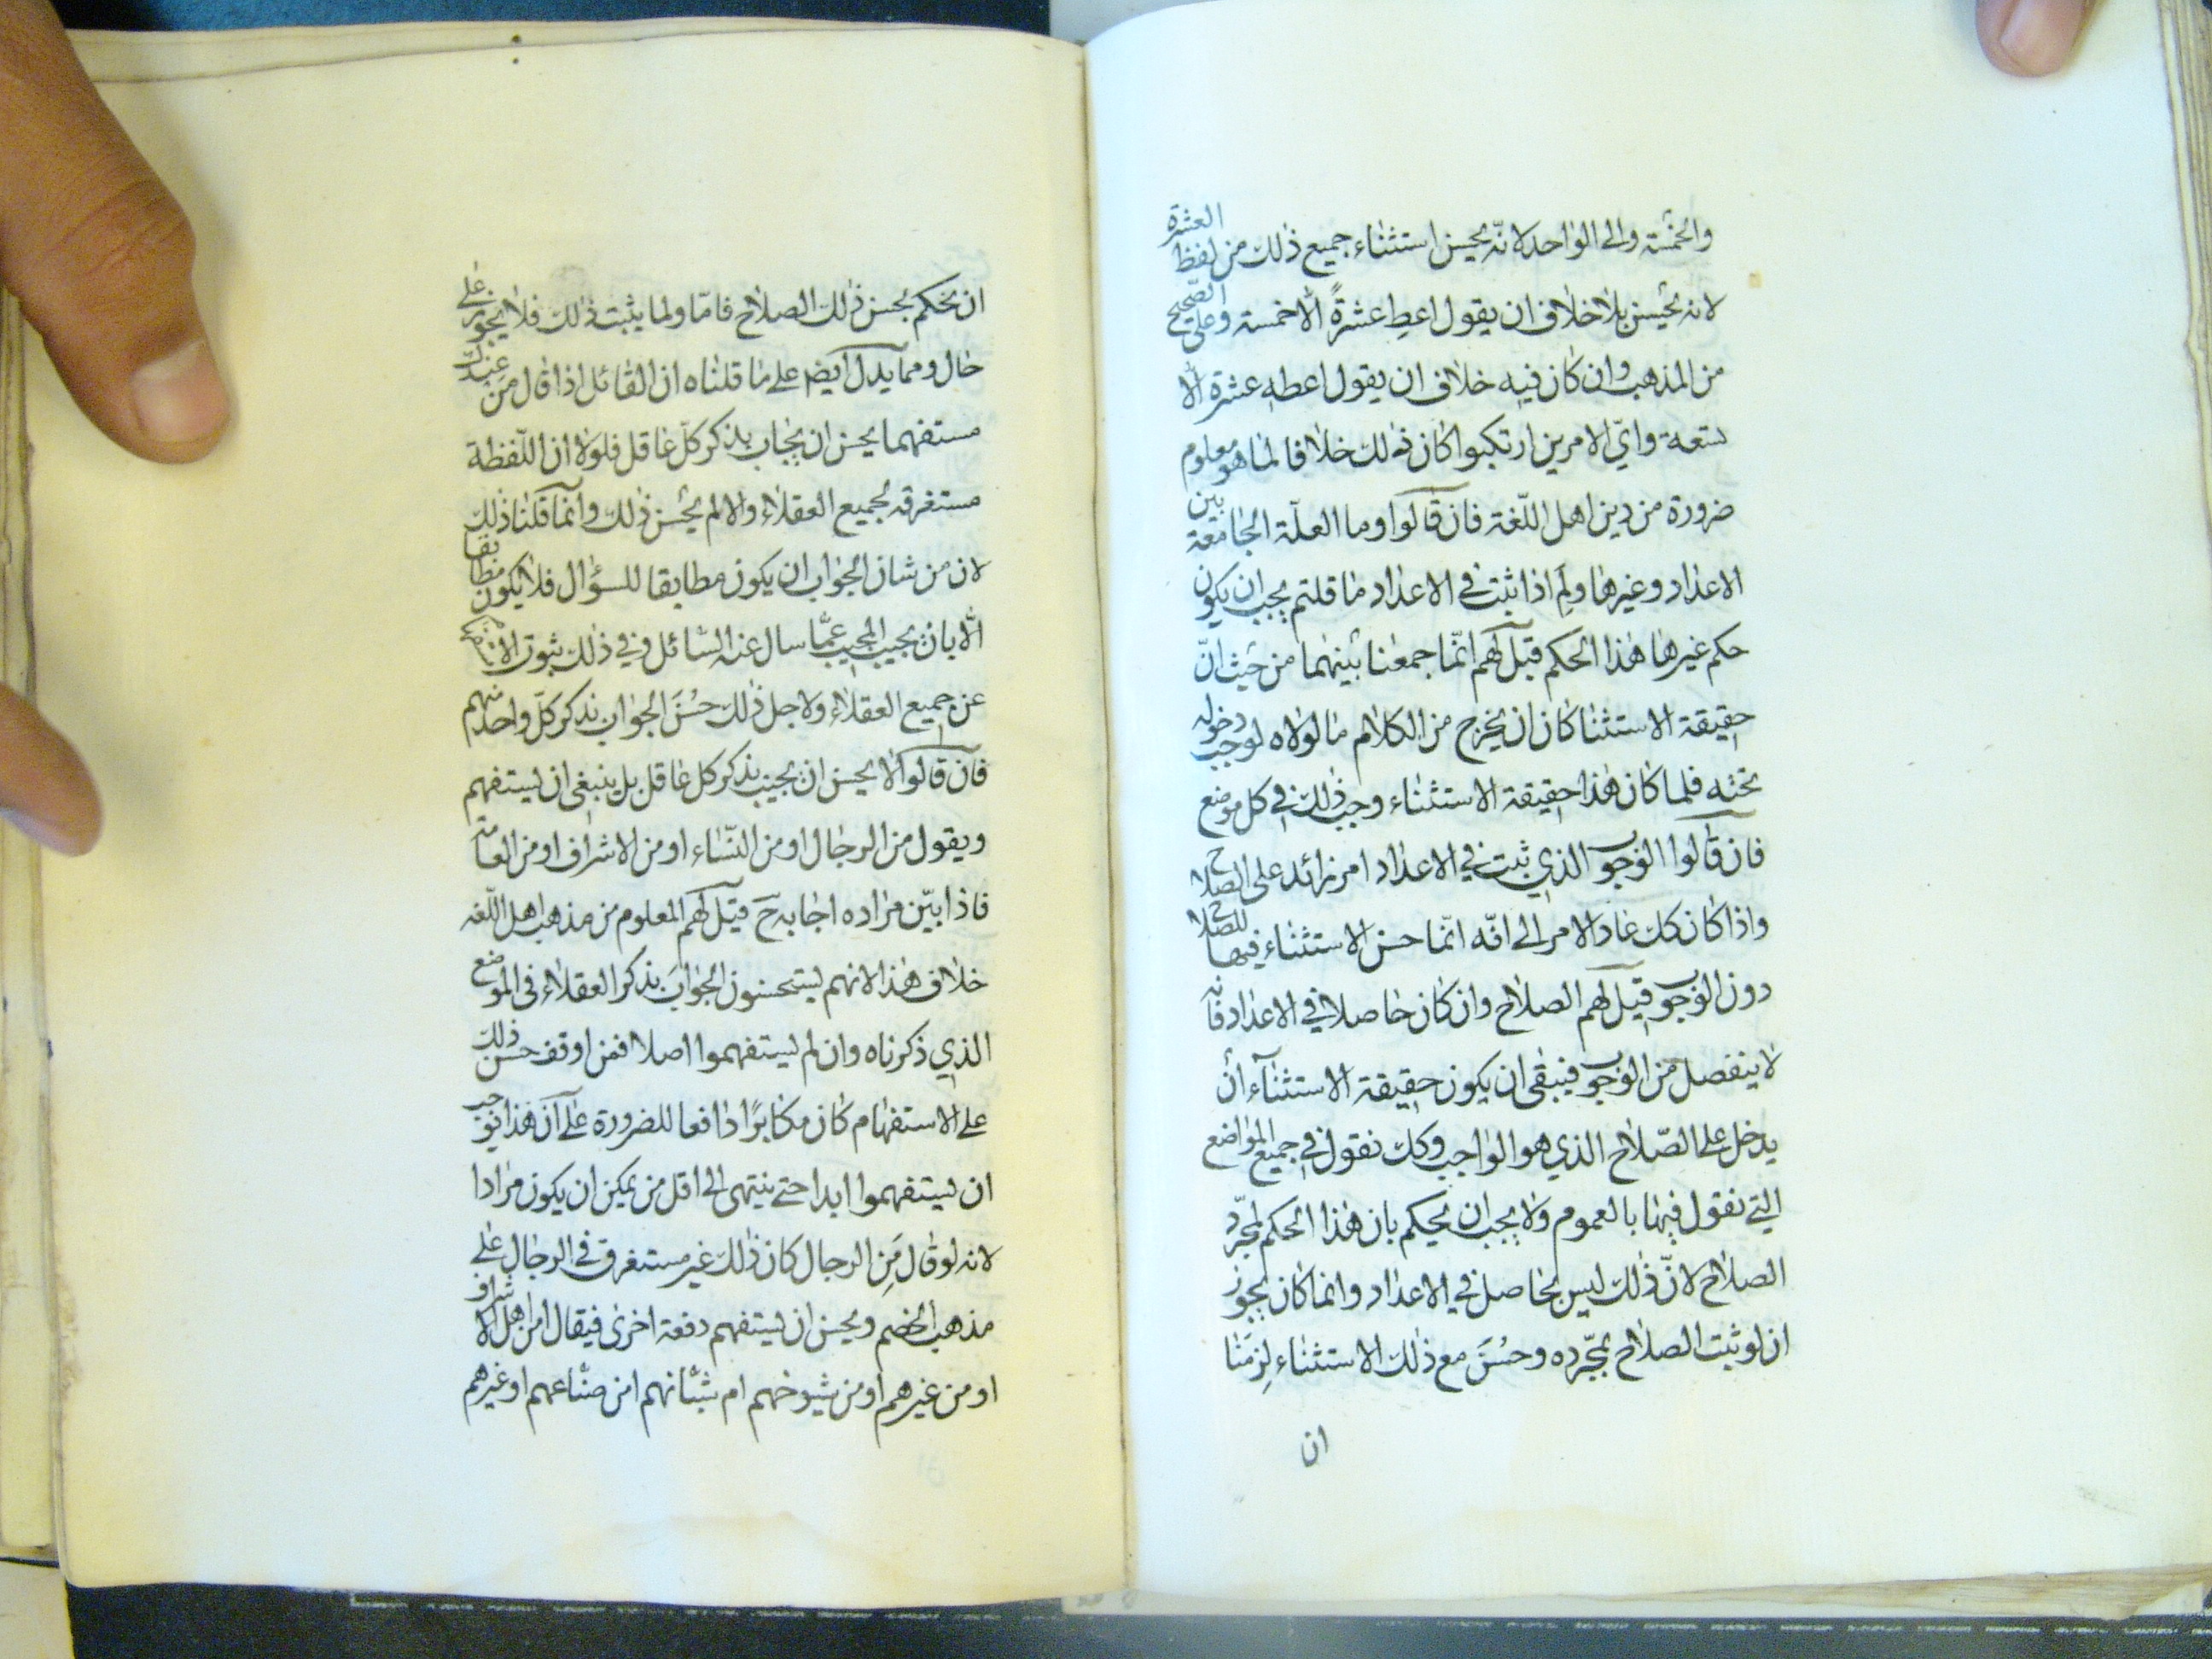 والخمسة والى الواحد لانّه يحسن استثناء جميع ذلك من لفظ العشرة
لانه يحسن بلا خلاف ان يقول اعطِ عشرةً الّا خمسة وعلى الصّحيح
من المذهب وان كان فيه خلاف ان يقول اعطه عشرة الّا
تسعة وايّ الامرين ارتكبوا كان ذلك خلافا لما هو معلوم
ضرورة من دين اهل اللّغة فان قالوا وما العلّة الجامعة بين
الاعداد وغيرها ولِمَ اذا ثبت في الاعداد ما قلتم يجب ان يكون
حكم غيرها هذا الحكم قيل لهم انّما جمعنا بينهما من حيث انّ
حقيقة الاستثنا كان ان يخرج من الكلام ما لولاه لوجب دخوله
تحته فلما كان هذا حقيقة الاستثناء وجب ذلك في كل موضع
فان قالوا الوجوب الذي ثبت في الاعداد امر زائد على الصلاح
واذا كان كك عاد الامر الى انّه انّما حسن الاستثناء فيها للصلاح
دون الوجوب قيل لهم الصلاح وان كان حاصلا في الاعداد فانّه
لا ينفصل من الوجوب فينبقى ان يكون حقيقة الاستثنآء ان
يدخل على الصّلاح الذي هو الواجب وكك نقول في جميع المواضع
التي نقول فيها بالعموم ولا يجب ان يحكم بان هذا الحكم لمجرّد
الصلاح لانّ ذلك ليس بحاصل في الاعداد وانما كان يجوز
ان لو ثبت الصلاح بمجّرده وحسُنَ مع ذلك الاستثناء لزمنا
ان
ان نحكم بحسن ذلك الصلاح فامّا ولما يثبت ذلك فلا يجوز على
حال ومما يدل ايضم على ما قلناه ان القائل اذا قال مَن عندك
مستفهما يحسن ان يجاب بذكر كلّ عاقل فلولا ان اللّفظة
مستغرقه لجميع العقلاء والا لم يحسن ذلك وانّما قلنا ذلك
لان من شان الجواب ان يكون مطابقا للسؤال فلا يكون مطابقا
الّا بان يجيب المجيب عمّا سال عنه السّائل وفي ذلك ثبوت
عن جميع العقلاء ولاجل ذلك حسُنَ الجواب بذكر كلّ واحد منهم
فان قالوا لا يحسن ان يجيب بذكر كل عاقل بل ينبغي ان يستفهم
ويقول من الرجال او من النّساء او من الاشراف او من العامّة
فاذا بيّن مراده اجابه حَ قيل لهم المعلوم من مذهب اهل اللّغه
خلاف هذا لانهم يستحسنون الجوابَ بذكر العقلاء في الموضع
الذي ذكرناه وان لم يستفهموا اصلا فمن اوقف حسن ذلك
على الاستفهام كان مكابرًا دافعا للضرورة على آن هذا يوجب
ان يستفهموا ابدا حتى ينتهى الى اقل من يمكن ان يكون مرادا
لانه لو قال مَنِ الرجال كان ذلك غير مستغرق في الرجال على
مذهب الخصم ويحسن ان يستفهم دفعة اخرى فيقال امن اهل الاشراف
او من غيرهم او من شيوخهم ام شبّانهم امن صنّاعهم او غيرهم